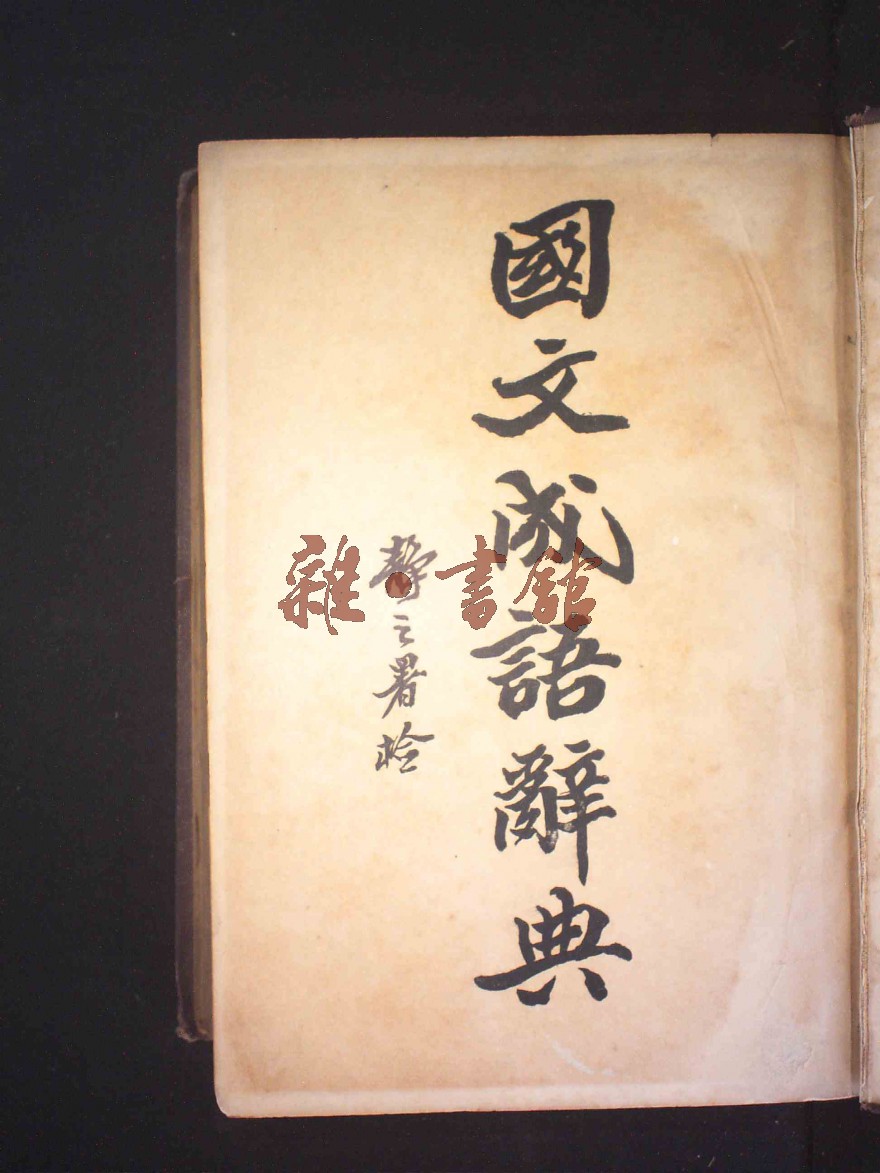 國文成語辭典
靜之署檢
雜·書館